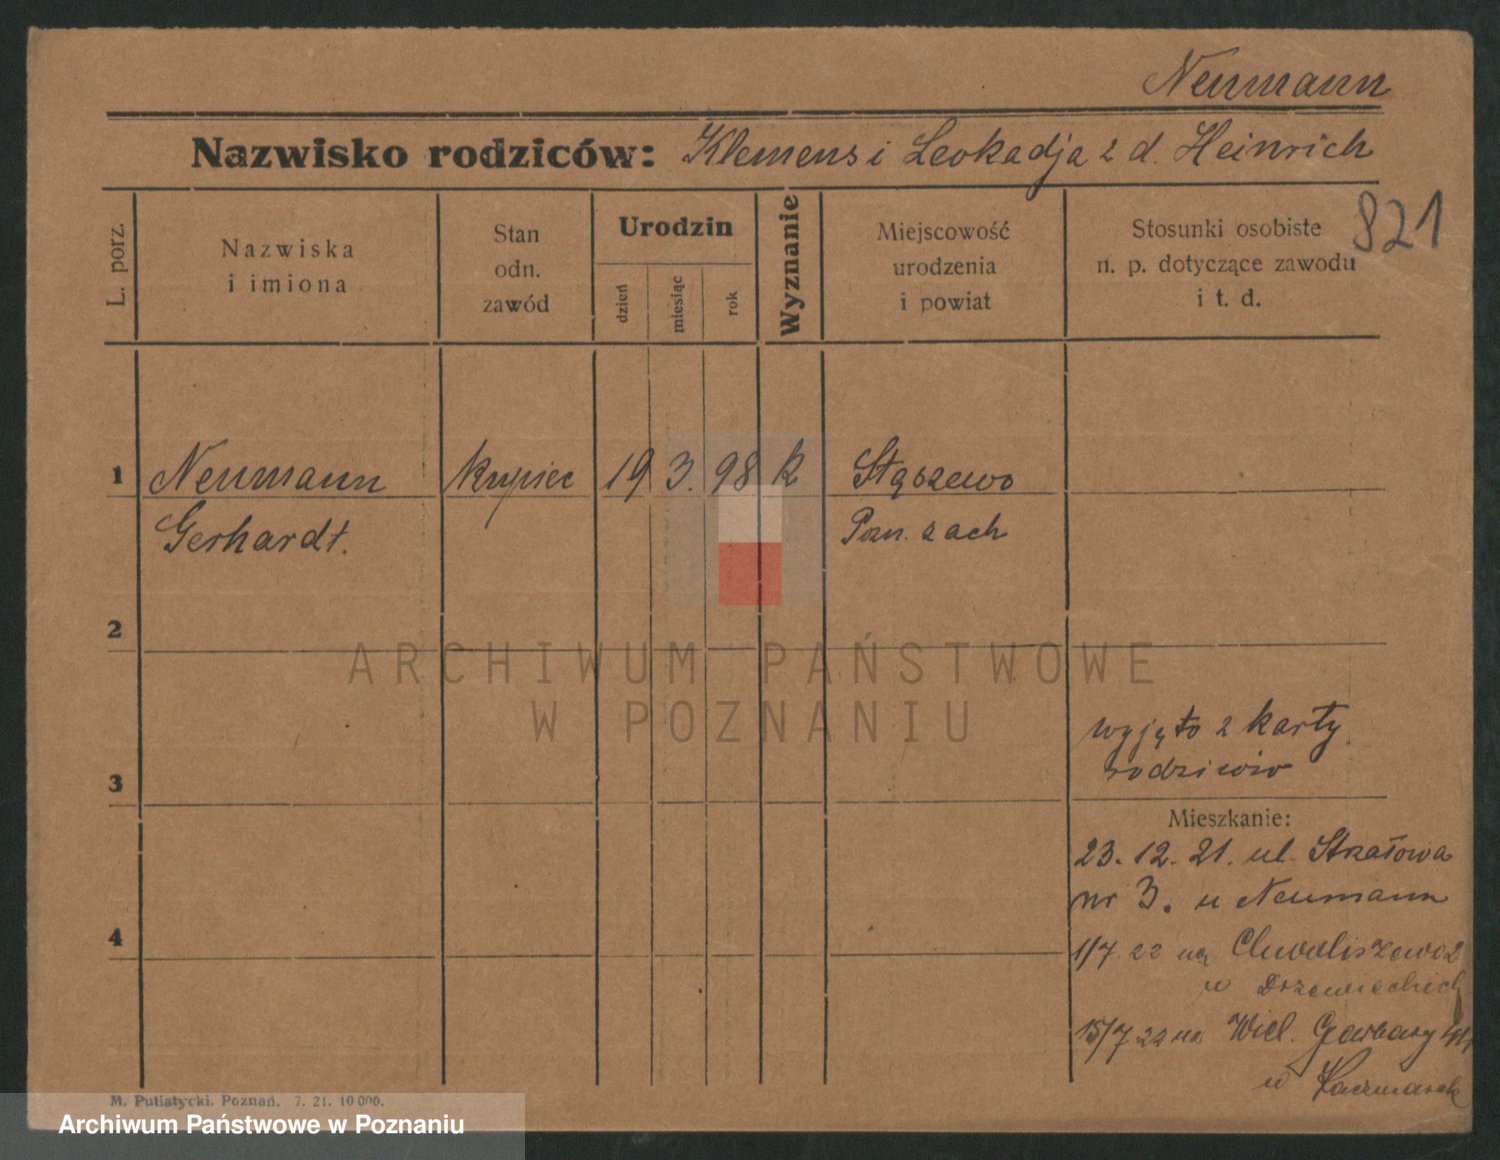 Neumann
Nazwisko rodziców: Klemens i Leokadja z d. Heinrich
821
L. porz.
Nazwiska
i imiona
Stan
odn.
zawód
Urodzin
dzień
miesiąc
rok
Wyznanie
Miejscowość
urodzenia
i powiat
Stosunki osobiste
n. p. dotyczące zawodu
i t. d.
1 Neumann kupiec 19 3. 98 k Stąszewo
Gerhardt. Pozn. zach
2
ARCHIWUM PAŃSTWOWE
W POZNANIU
wyjęto z karty
rodziców
3
Mieszkanie:
23. 12. 21. ul. Strałowa
nr 3. u Neumann
4
1/7 22 na Chwaliszewo 2
u Drzewieckich
15/7 22 na Wiel. Garbary 41
u Kaczmarek
M. Putiatycki. Poznań. 7. 21. 10 000.
Archiwum Państwowe w Poznaniu